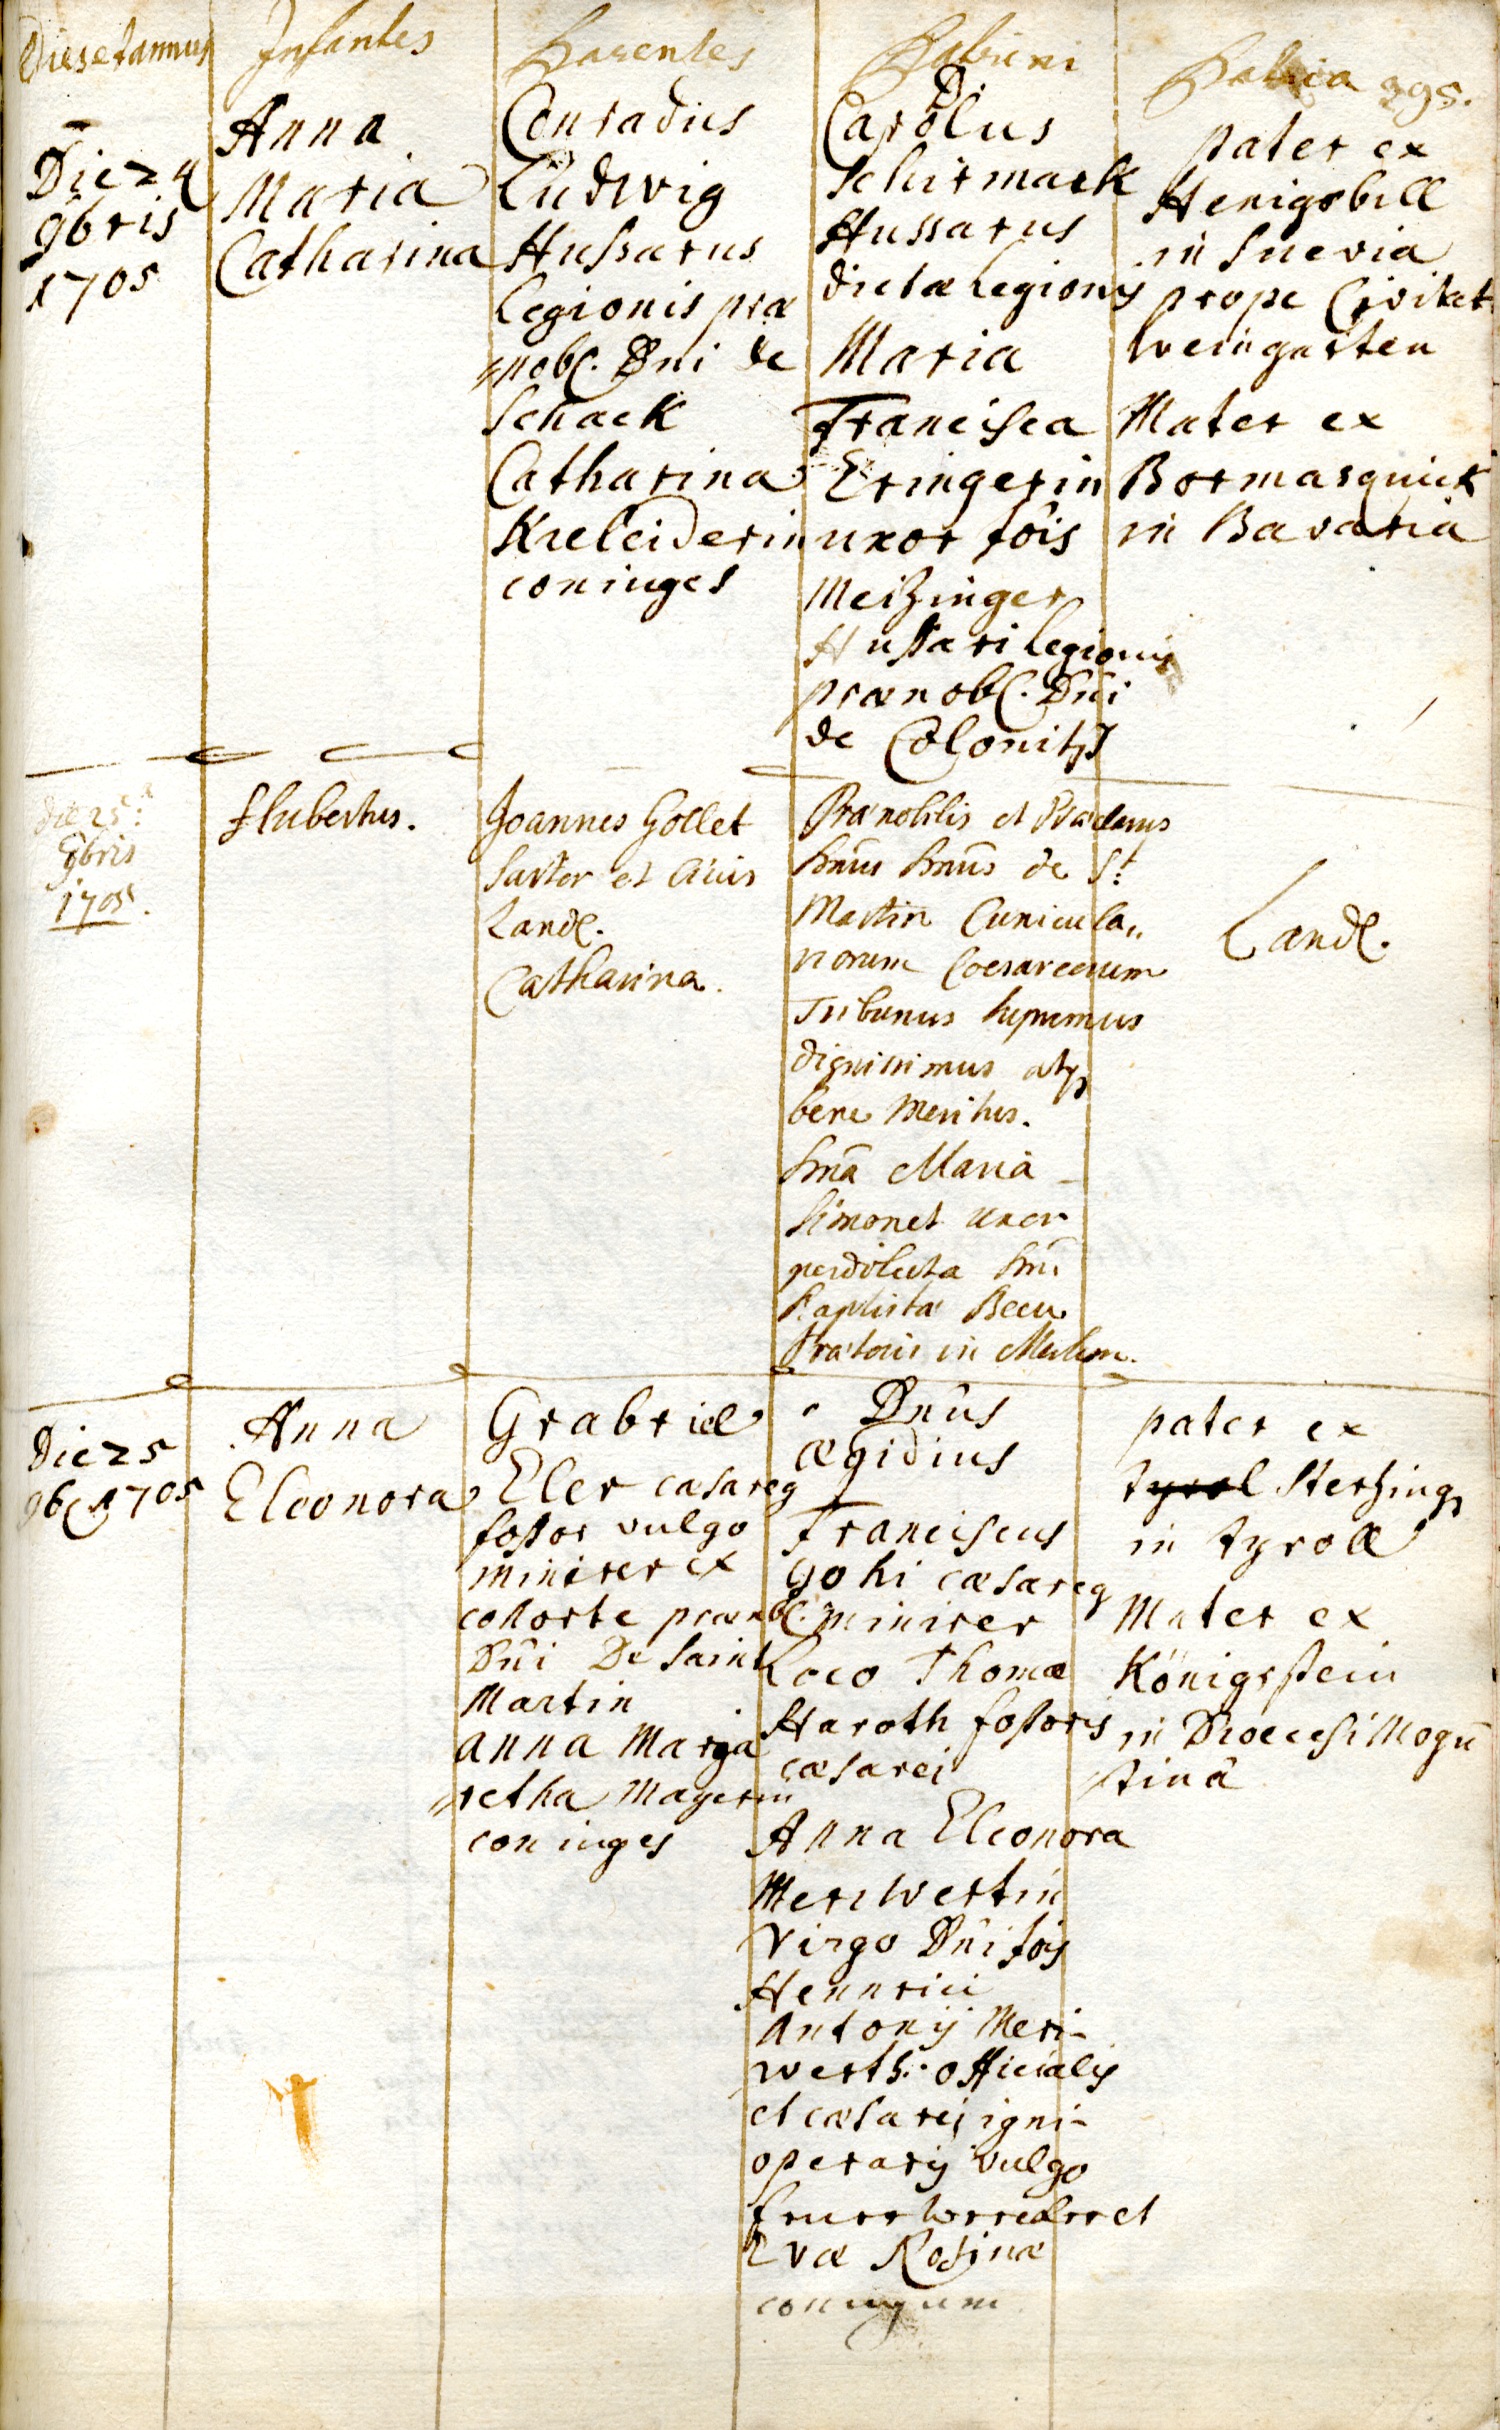 Dies et annus
Infantes
Parentes
Patrini
Patria 395.
Die 24
9bris
1705
Anna
Maria
Catharina
Conradus
Ludwig
Hussarus
legionis præ
nobl. Dni de
Schack
Catharina
Kreleiderin
coniuges
D.
Carolus
Schirmack
Hussarus
dictæ legionis
Maria
Francisca
Eringerin
uxor Jois
Meitzinger
Hussari legionis
prænobl. Dni
de Colonitz
pater ex
Henigsbill
in Suevia
prope Civitat
Weingarten
Mater ex
Bormasquick
in Bavaria
die 25ª
9bris
1705.
Hubertus.
Joannes Gollet
Sartor et Civis
Land.
Catharina.
Prænobilis et
de St
Martin Cunicula„
riorum Coesareorum
Tribunus supremus
dignissimus atq
bene Meritus.
Maria
Simonet uxor
perdilecta
Baptistæ Becu
Prætoris in
Land.
Die 25
9b 1705
Anna
Eleonora
Grabriel
Eler casareg
fossor vulgo
minirer ex
cohorte prænobl.
Dni De Saint
Martin
anna Marga
retha Mayerin
coniuges
Dnus
ægidius
Franciscus
Gohi cæsareg
minirer
Loco Thomæ
Haroth fossoris
cæsarei
Anna Eleonora
Meriwertin
Virgo Dni Jois
Hennrici
Antonij Meri-
werth. officialis
et cæsarei igni-
operarij vulgo
feuerwercker et
Evæ Rosinæ
coniugum
pater ex
tyrol Stertzing
in tyroll
Mater ex
Königstein
in Dioecesi Mogu
tina